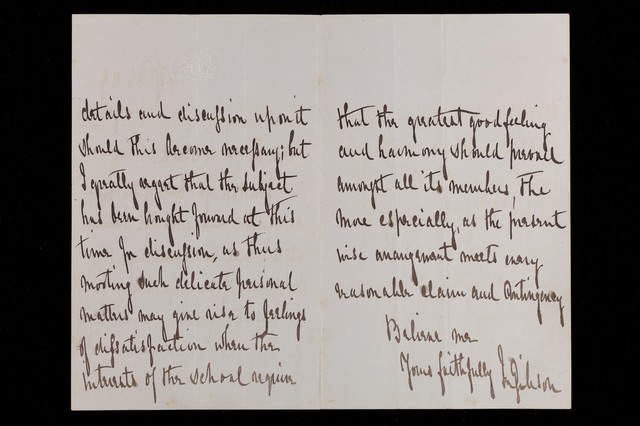 details and discussion upon it
should this become necessary; but
I greatly regret that the subject
has been brought forward at this
time for discussion, as thus
mooting such delicate personal
matters may give rise to feelings
of dissatisfaction when the
interests of the school require
that the greatest good feeling
and harmony should prevail
amongst all its members, The
more especially, as the present
wise arrangement meets every
reasonable claim and contingency
Believe me
Yours faithfully